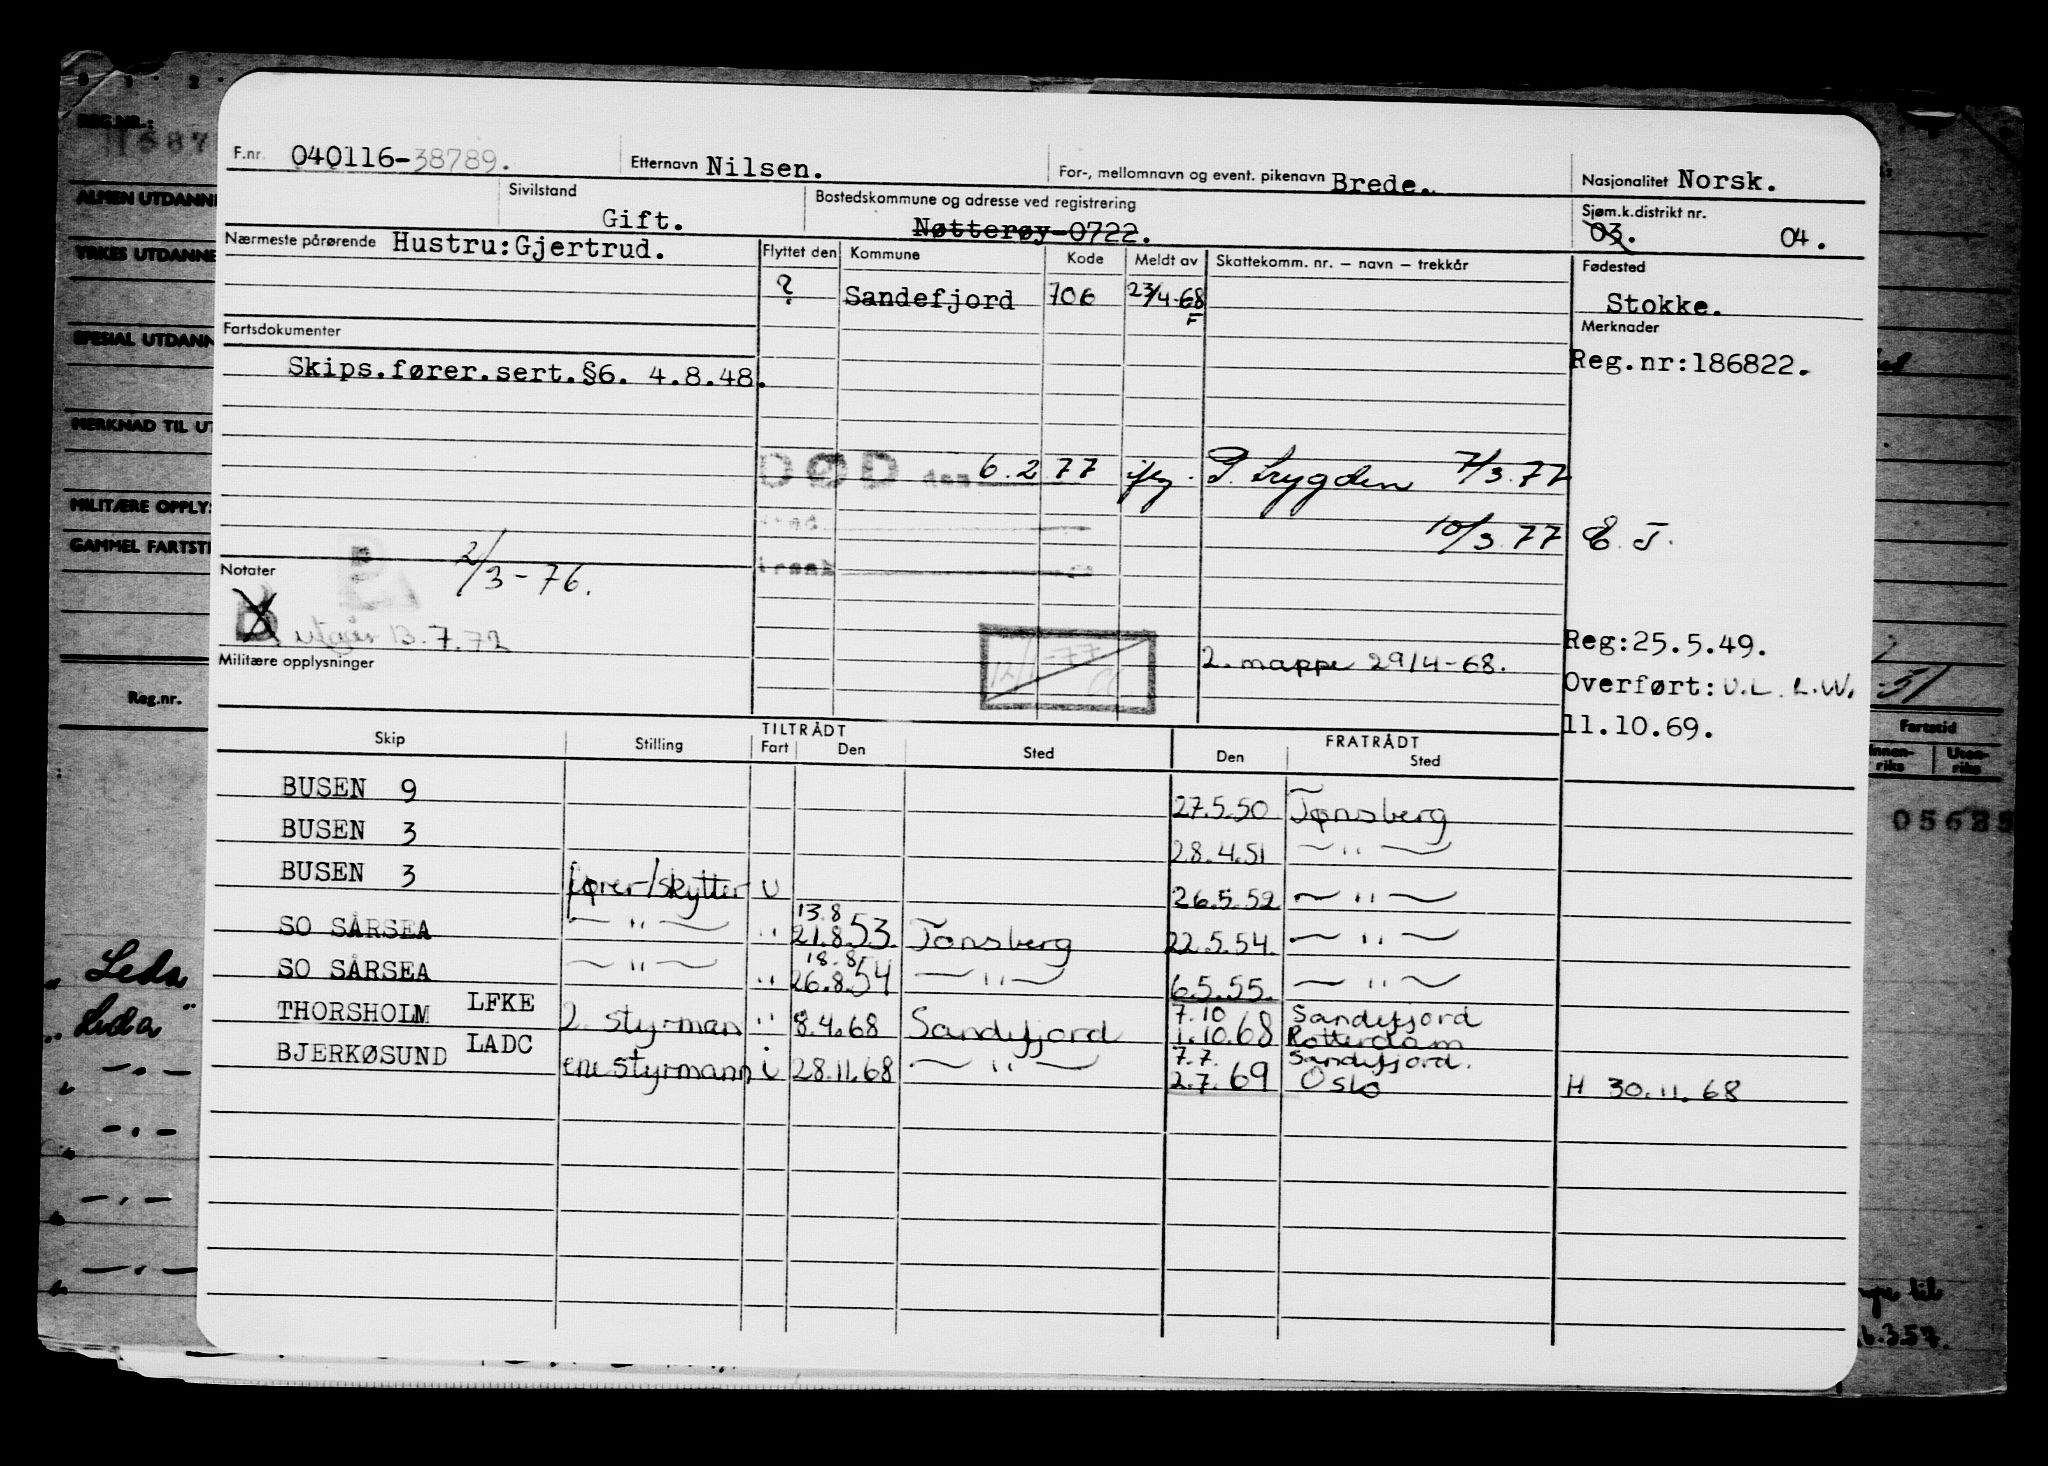 REG.NR.:
F.nr. 040116-38789. Etternavn Nilsen. For-, mellomnavn og event. pikenavn Brede. Nasjonalitet Norsk.
ALMEN UTDANNE
Sivilstand Gift. Bostedskommune og adresse ved registrering Nøtterøy-0722. Sjøm.k.distrikt nr. 03. 04.
YRKES UTDANNE
Nærmeste pårørende Hustru:Gjertrud. Flyttet den Kommune Kode Meldt av Skattekomm. nr. – navn – trekkår Fødested
? Sandefjord 706 23/4-68 F Stokke.
SPESIAL UTDANN
Fartsdokumenter Merknader
Skips.fører.sert.§6. 4.8.48. Reg.nr:186822.
MERKNAD TIL UT
DØD den 6.2 77 P. trygden 7/3.77
MILITÆRE OPPLYS
10/3.77 E. J.
GAMMEL FARTSTI
Notater 2/3-76.
B utgår 13.7.72
Reg:25.5.49.
Militære opplysninger 2. mappe 29/4-68.
Overført: U.L. L.W.
11.10.69.
Reg.nr. Fartstid
Innen-riks Uten-riks
TILTRÅDT FRATRÅDT
Skip Stilling Fart Den Sted Den Sted
BUSEN 9 27.5.50 Tønsberg
BUSEN 3 28.4.51 — " —
BUSEN 3 fører/skytter U 26.5.52 — " —
SO SÅRSEA — " — " 13.8 21.8.53 Tønsberg 22.5.54. — " —
SO SÅRSEA — " — " 18.8 26.8.54 — " — 6.5.55. — " —
THORSHOLM LFKE 2. styrman " 8.4.68 Sandefjord 7.10 1.10.68 Sandefjord Rotterdam
BJERKØSUND LADC ene styrmann i 28.11.68 — " — 7.7. 2.7.69 Sandefjord. Oslo H 30.11.68
Leda
"Leda"